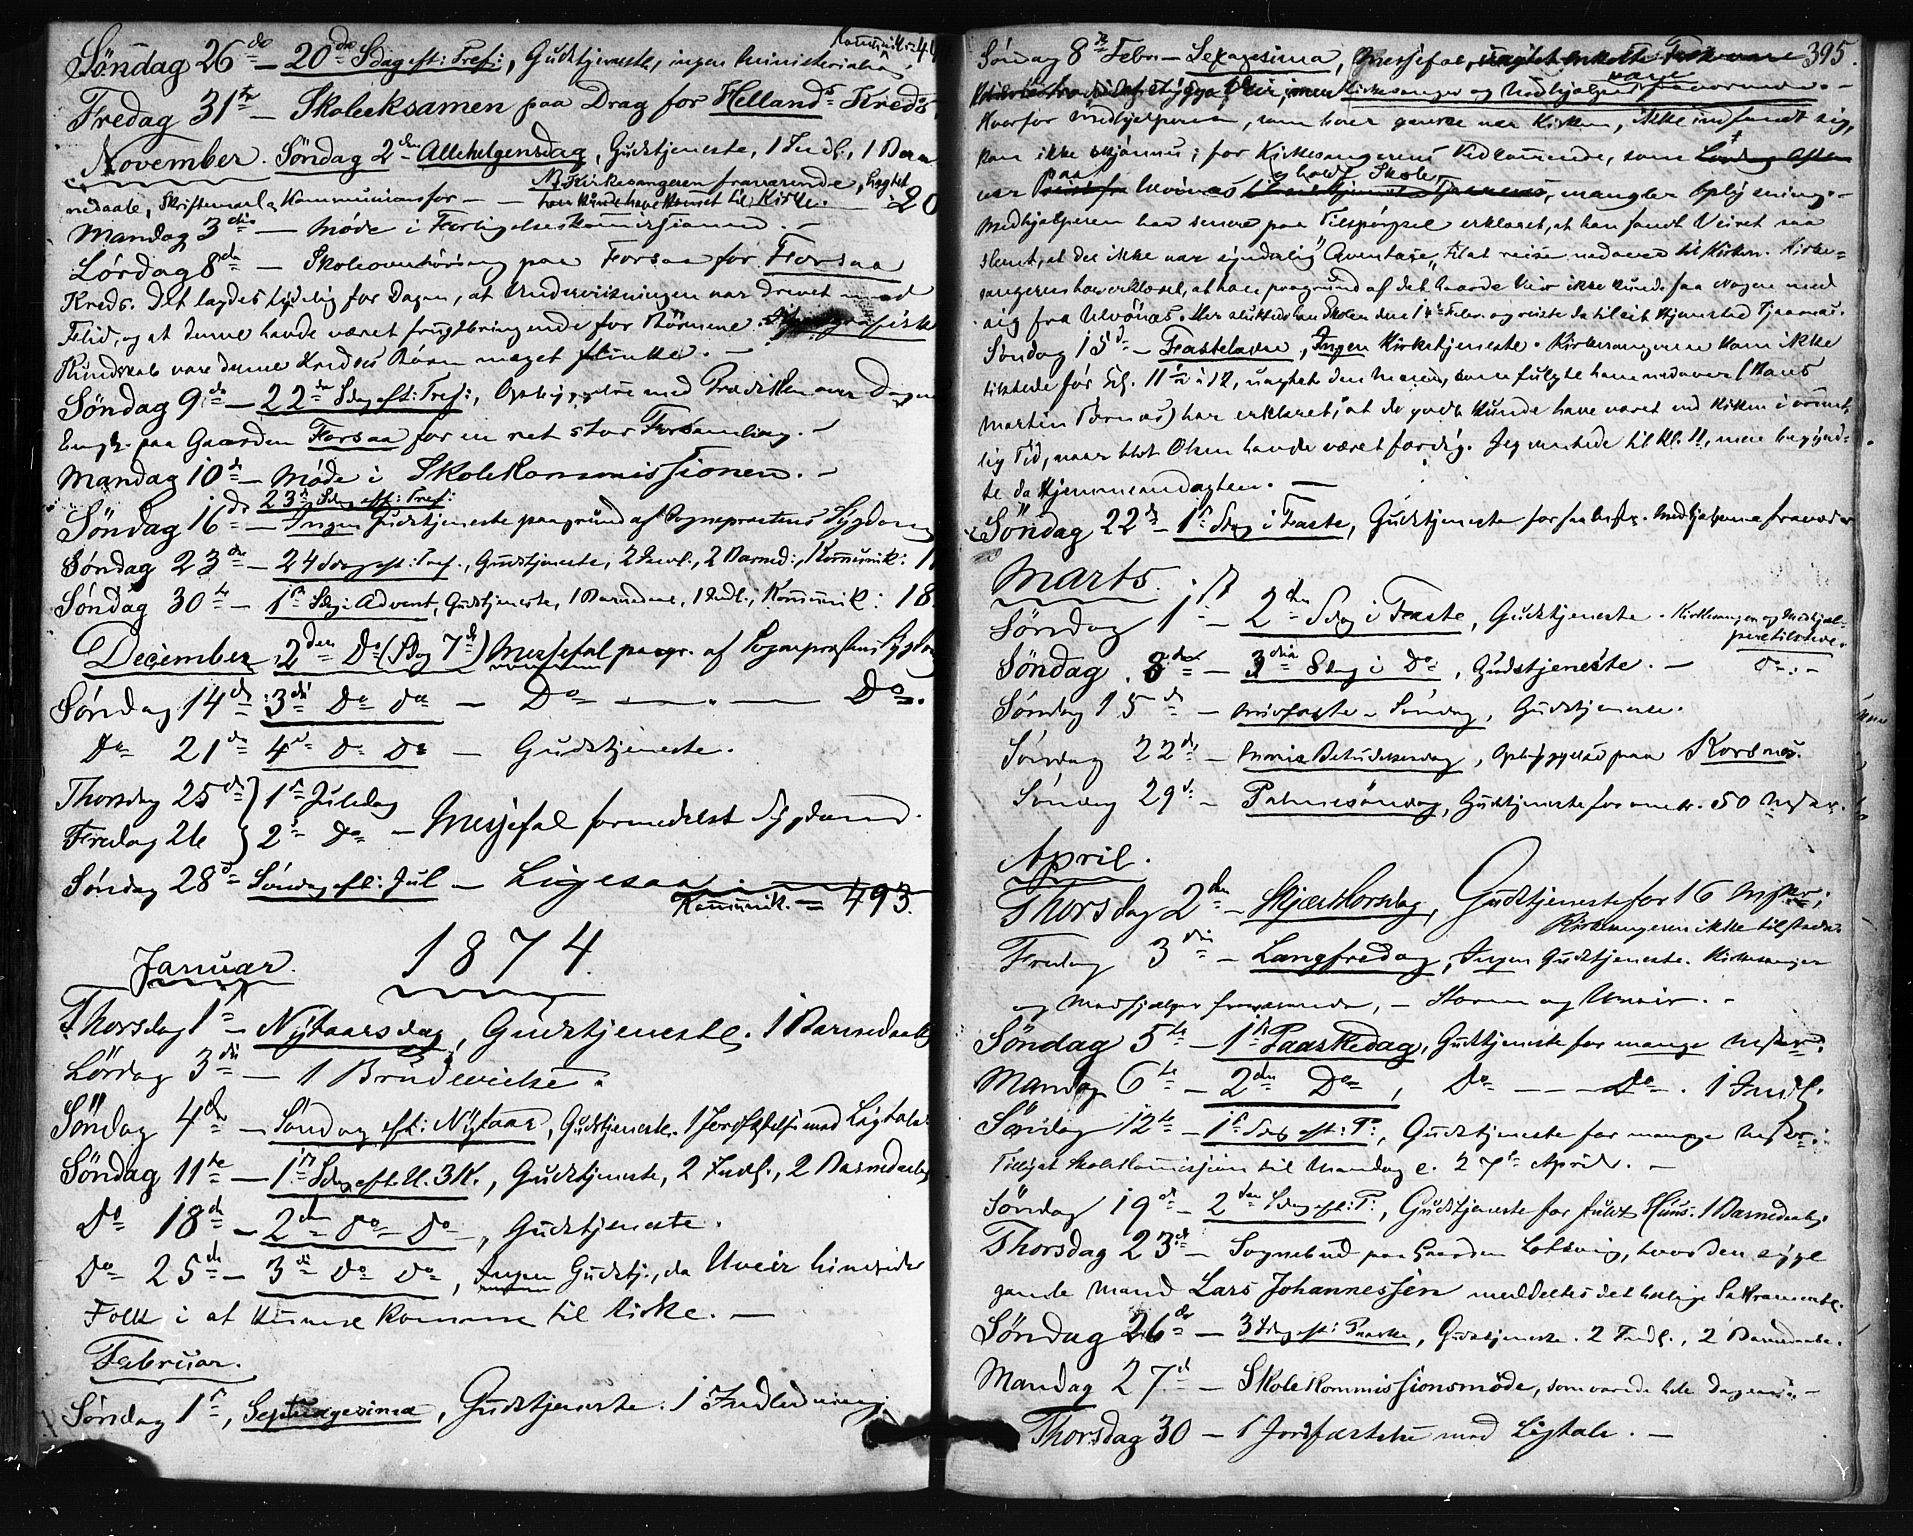 Kommunik: 44
Søndag 26de – 20de Sdag eft: Tref:, Gudstjeneste, ingen ministerialia.
Fredag 31te – Skoleeksamen paa Drag for Hellands Kreds
November. Søndag 2den Allehelgensdag, Gudstjeneste, 1 Indl., 1 Barn
Kirkesangeren fraværende,
nedaab, Skriftemaal & Kommunion for – – han kunde have kommet til Kirke. 20
Mandag 3die – Møde i Forligelseskommissionen. –
Lørdag 8de – Skoleoverhøring paa Forsaa for Forsaa
Kreds. Det lagdes tydelig for Dagen, at Undervisningen var drevet med
Flid, og at denne havde været frugtbringende for Børnene.
Kundskab vare denne Kredses Børn meget flinke. –
Søndag 9de – 22de Sdag eft: Tref:, Opbyggelse med Prædiken over Dagens
Evgl. paa Gaarden Forsaa for en ret stor Forsamling. –
Mandag 10de – Møde i Skolekommissionen. –
23de Sdag eft: Tref:
Søndag 16de – Ingen Gudstjeneste paagrund af Sognepræstens Sygdom
Søndag 23de – 24 Sdag eft: Tref., Gudstjeneste, 2 Indl., 2 Barned:, Kommunik: 1
Søndag 30te – 1ste Sdag i Advent, Gudstjeneste, 1 Barnedaab, 1 Indl., Kommunik: 18
December, 2den Do (Sdag 7de) Messefal paagr. af Sognepræstens Sygdom
Søndag 14de 3die Do Do – Do – . – Do.
Do 21de 4de Do Do – Gudstjeneste.
Thorsdag 25de } 1ste Juledag
Fredag 26 } 2den Do – Messefal formedelst Sygdom.
Søndag 28de Søndag eft: Jul – Ligesaa.
Kommunik. = 493.
1874.
Januar.
Thorsdag 1ste – Nytaarsdag, Gudstjeneste. 1 Barnedaab
Lørdag 3die – 1 Brudevielse.
Søndag 4de – Søndag eft: Nytaar, Gudstjeneste. 1 Jordfæstelse med Ligtale.
Søndag 11te – 1ste Sdag eft. H. 3K., Gudstjeneste, 2 Indl., 2 Barnedaab
Do 18de – 2den Do Do, Gudstjeneste.
Do 25de – 3die Do Do, Ingen Gudstj., da Uveir hindrede
Folk i at kunne komme til Kirke. –
Februar.
Søndag 1ste, Septuagesima, Gudstjeneste. 1 Indledning.
395.
Søndag 8de Febr. – Sexagesima, Messefal, uagtet enkelte Folk vare
Veir, men Kirkesanger og Medhjælper vare fraværende. –
Hvorfor Medhjelperen, som boer ganske nær Kirken, ikke indfandt sig,
kan ikke skjønnes; for Kirkesangerens Vedkommende, som Lørdag Aften
var paa Ulvönæs & holdt Skole, mangler Oplysning. –
Medhjelperen har senere paa Tilspørgsel erklæret, at han fandt Veiret saa
slemt, at der ikke var synderlig "Aventage" til at reise nedover til Kirken. Kirke=
sangeren har erklæret, at han paagrund af det haarde Veir ikke kunde faa Nogen med
sig fra Ulvönæs. Her sluttede han Skolen den 14de Febr. og reiste da til sit Hjemsted Tjærnæs.
Søndag 15de – Fastelavn, Ingen Kirketjeneste. Kirkesangeren kom ikke
tilstede før Kl. 11½ à 12, uagtet den Mand, som fulgte ham nedover (Hans
Martin Børnæs) har erklæret, at de godt kunde have været ved Kirken i ordent=
lig Tid, naar blot Olsen havde været færdig. Jeg ventede til Kl. 11, men begynd=
te da Hjemmeandagten. –
Søndag 22de – 1ste Sdag i Faste, Gudstjeneste for faa Mskr. Medhjelperen fraværende
Marts.
Søndag 1ste – 2den Sdag i Faste, Gudstjeneste. Kirkesanger og Medhjel=
pere tilstede.
Søndag 8de – 3die Sdag i Do, Gudstjeneste. – Do. –
Søndag 15de – Midfaste-Søndag, Gudstjeneste.
Søndag 22de – Mariæ Bebudelsesdag, Opbyggelse paa Korsnæs.
Søndag 29de – Palmesøndag, Gudstjeneste for omtr. 50 Mskr.
April.
Thorsdag 2den – Skjærthorsdag, Gudstjeneste for 16 Mskr.;
Kirkesangeren ikke tilstede.
Fredag 3die – Langfredag, Ingen Gudstjeneste. Kirkesanger
og Medhjælper fraværende, – Storm og Uveir. –
Søndag 5te – 1ste Paaskedag, Gudstjeneste for mange Mskr.
Mandag 6te – 2den Do, Do – – Do. 1 Indl.
Søndag 12te – 1ste Sdag eft: P:, Gudstjeneste for mange Mskr.;
Tillyst Skolekommission til Mandag e. 27de April. –
Søndag 19de – 2den Sdag eft: P:, Gudstjeneste for fuldt Huus. 1 Barnedaab.
Thorsdag 23de – Sognebud paa Gaarden Lotsvig, hvor den syge
gamle Mand Lars Johannessen meddeltes det hellige Sakramente.
Søndag 26de – 3 Sdag eft: Paaske, Gudstjeneste. 2 Indl., 2 Barnedaabe.
Mandag 27de – Skolekommissionsmøde, som varede hele Dagen. –
Thorsdag 30 – 1 Jordfæstelse med Ligtale. –